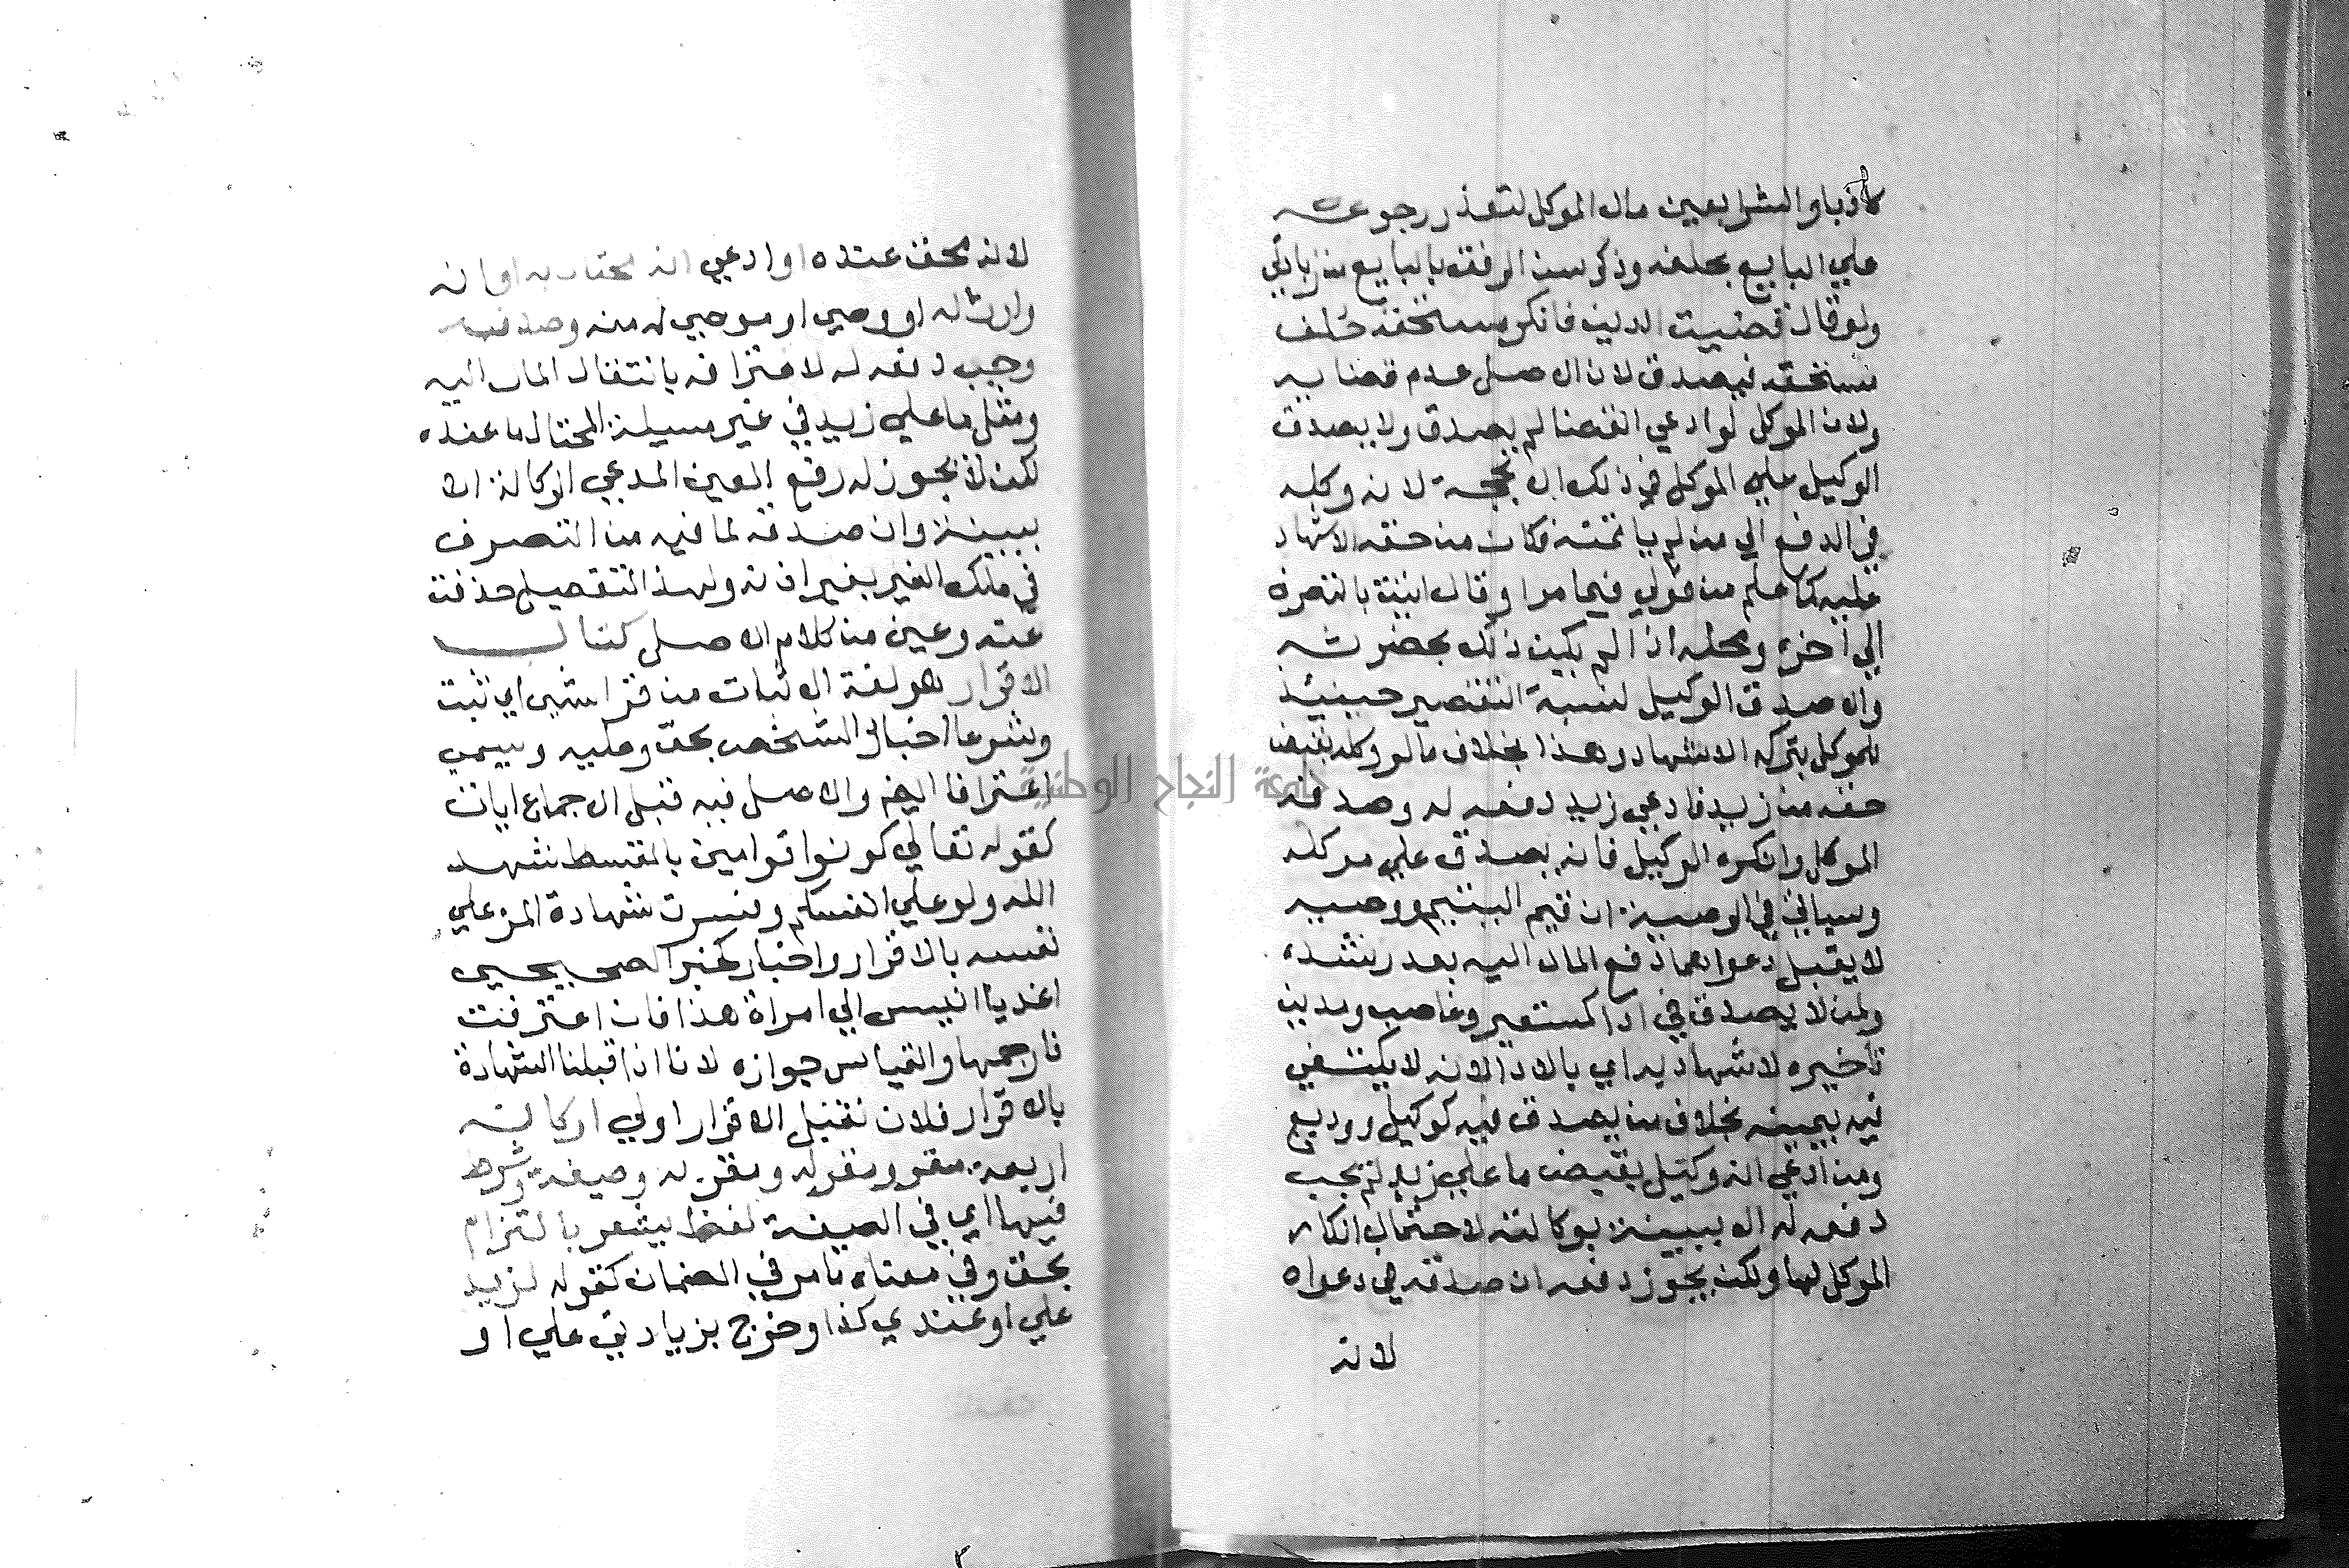 كاذبا والشرا بعين مال الموكل لتعذر رجوعه
علي البايع بحلفه وذكر سن الرفق بالبايع من زيادتي
ولو قال قضيت الدين فانكر مستحقه حلف
مستحقه فيصدق لان الاصل عدم قضايه
ولان الموكل لو ادعي القضا لم يصدق ولا يصدق
الوكيل علي الموكل في ذلك الا بحجة لانه وكله
في الدفع الي من لم ياتمنه فكان من حقه الاشهاد
عليه كما علم من قولي فيما مر او قال اتيت بالتصرف
الي اخره ومحله اذا لم يكن ذلك بحضرته
والا صدق الوكيل لنسبة التقصير حينيذ
للموكل بتركه الاشهاد وهذا بخلاف ما لو وكله بقبض
حقه من زيد فادعي زيد دفعه له وصدقه
الموكل وانكره الوكيل فانه يصدق علي موكله
وسياتي في الوصية ان قيم اليتيم ووصيه
لا يقبل دعواهما دفع المال اليه بعد رشده
ولمن لا يصدق في ادا كمستعير وغاصب ومدين
تاخيره لاشهاد به اي بالادا لانه لا يكتفي
فيه بيمينه بخلاف من يصدق فيه كوكيل ووديع
ومن ادعي انه وكيل بقبض ما علي زيد لم يجب
دفعه له الا ببينة بوكالته لاحتمال انكار
الموكل لها ولكن يجوز دفعه ان صدقه في دعواه
لانه
لانه محق عنده او ادعي انه محتال به او انه
وارث له او وصي او موصي له منه وصدقه
وجب دفعه له لاعترافه بانتقال المال اليه
ومثل ما علي زيد في غير مسيلة المحتال ما عنده
لكن لا يجوز له دفع العين لمدعي الوكالة الا
ببينة وان صدقه لما فيه من التصرف
في ملك الغير بغير اذنه ولهذا التفصيل حذفت
عنه وعين من كلام الاصل كتاب
الاقرار هو لغة الاثبات من قر الشي اي ثبت
وشرعا اخبار الشخص بحق عليه ويسمي
اعترافا ايضا والاصل فيه قبل الاجماع ايات
كقوله تعالي كونوا قوامين بالقسط شهدا
لله ولو علي انفسكم وفسرت شهادة المر علي
نفسه بالاقرار واخبار كخبر الصحيحين
اغد يا انيس الي امراة هذا فان اعترفت
فارجمها والقياس جوازه لانا اذا قبلنا الشهادة
بالاقرار فلان نقبل الاقرار اولي اركانه
اربعة مقر ومقر له ومقر به وصيغة وشرط
فيها اي في الصيغة لفظ يشعر بالتزام
بحق وفي معناه ما مر في الضمان كقوله لزيد
علي او عندي كذا وخرج بزيادتي علي او
جامعة النجاح الوطنية